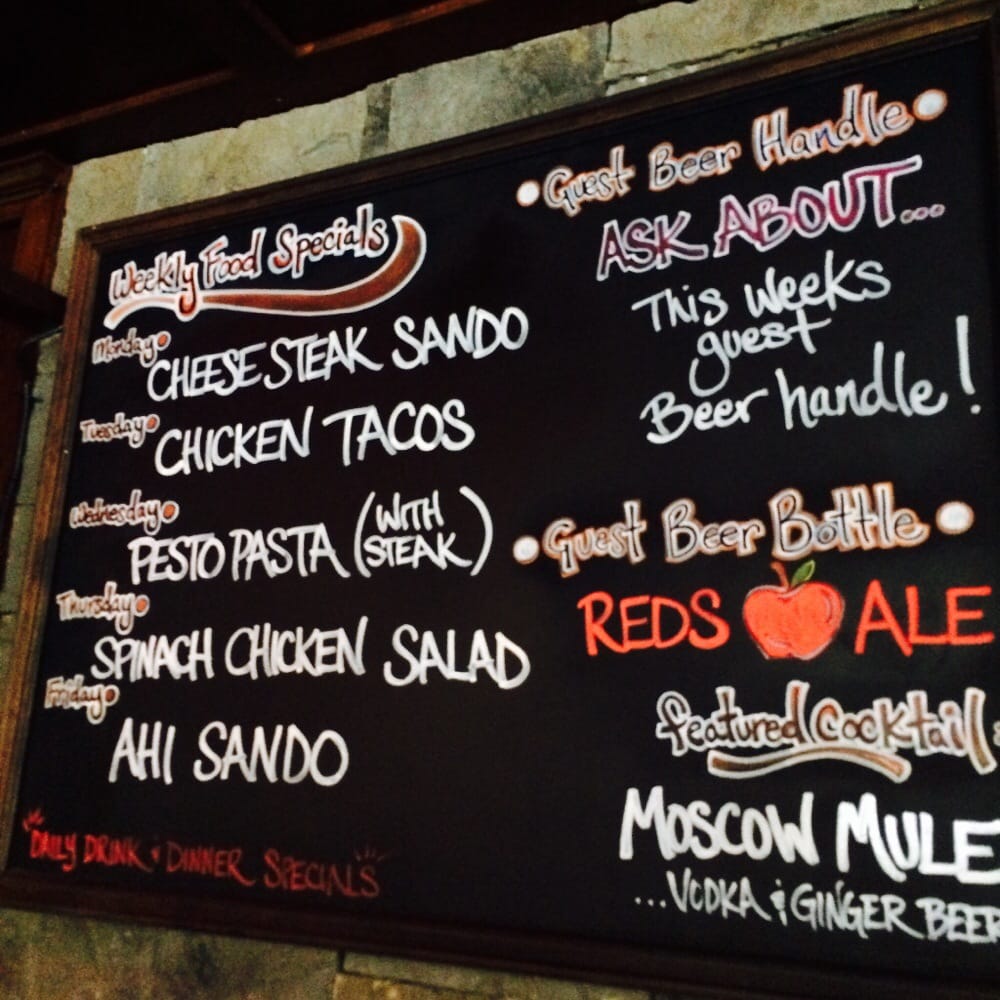 Weekly Food Specials
Monday
CHEESE STEAK SANDO
Tuesday
CHICKEN TACOS
Wednesday
PESTO PASTA (WITH STEAK)
Thursday
SPINACH CHICKEN SALAD
Friday
AHI SANDO
DAILY DRINK & DINNER SPECIALS
• Guest Beer Handle •
ASK ABOUT...
This weeks
guest
Beer handle!
• Guest Beer Bottle •
REDS ALE
featured Cocktail
MOSCOW MULE
...VODKA & GINGER BEER